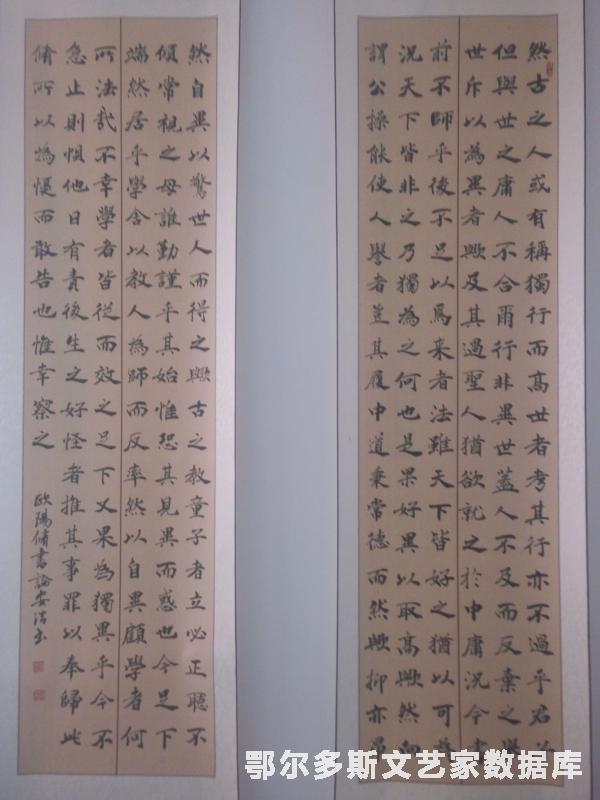 然古之人或有稱獨行而高世者考其行亦不過乎君
但與世之庸人不合爾行非異世蓋人不及而反棄之舉
世斥以為異者歟及其過聖人猶欲就之於中庸況今
前不師乎後不足以為来者法雖天下皆好之猶以可
況天下皆非之乃獨為之何也是果好異以取高歟然向
謂公操能使人譽者豈其履中道秉常德而然歟抑亦昂
然自異以驚世人而得之歟古之教童子者立必正聽不
傾常視之毋誰勤謹乎其始惟恐其見異而惑也今足下
端然居乎學舍以教人為師而反率然以自異顧學者何
所法哉不幸學者皆從而效之足下又果為獨異乎今不
急止則懼他日有責後生之好怪者推其事罪以奉歸此
脩所以為懼而敢告也惟幸察之
歐陽脩書論安浩書
鄂尔多斯文艺家数据库